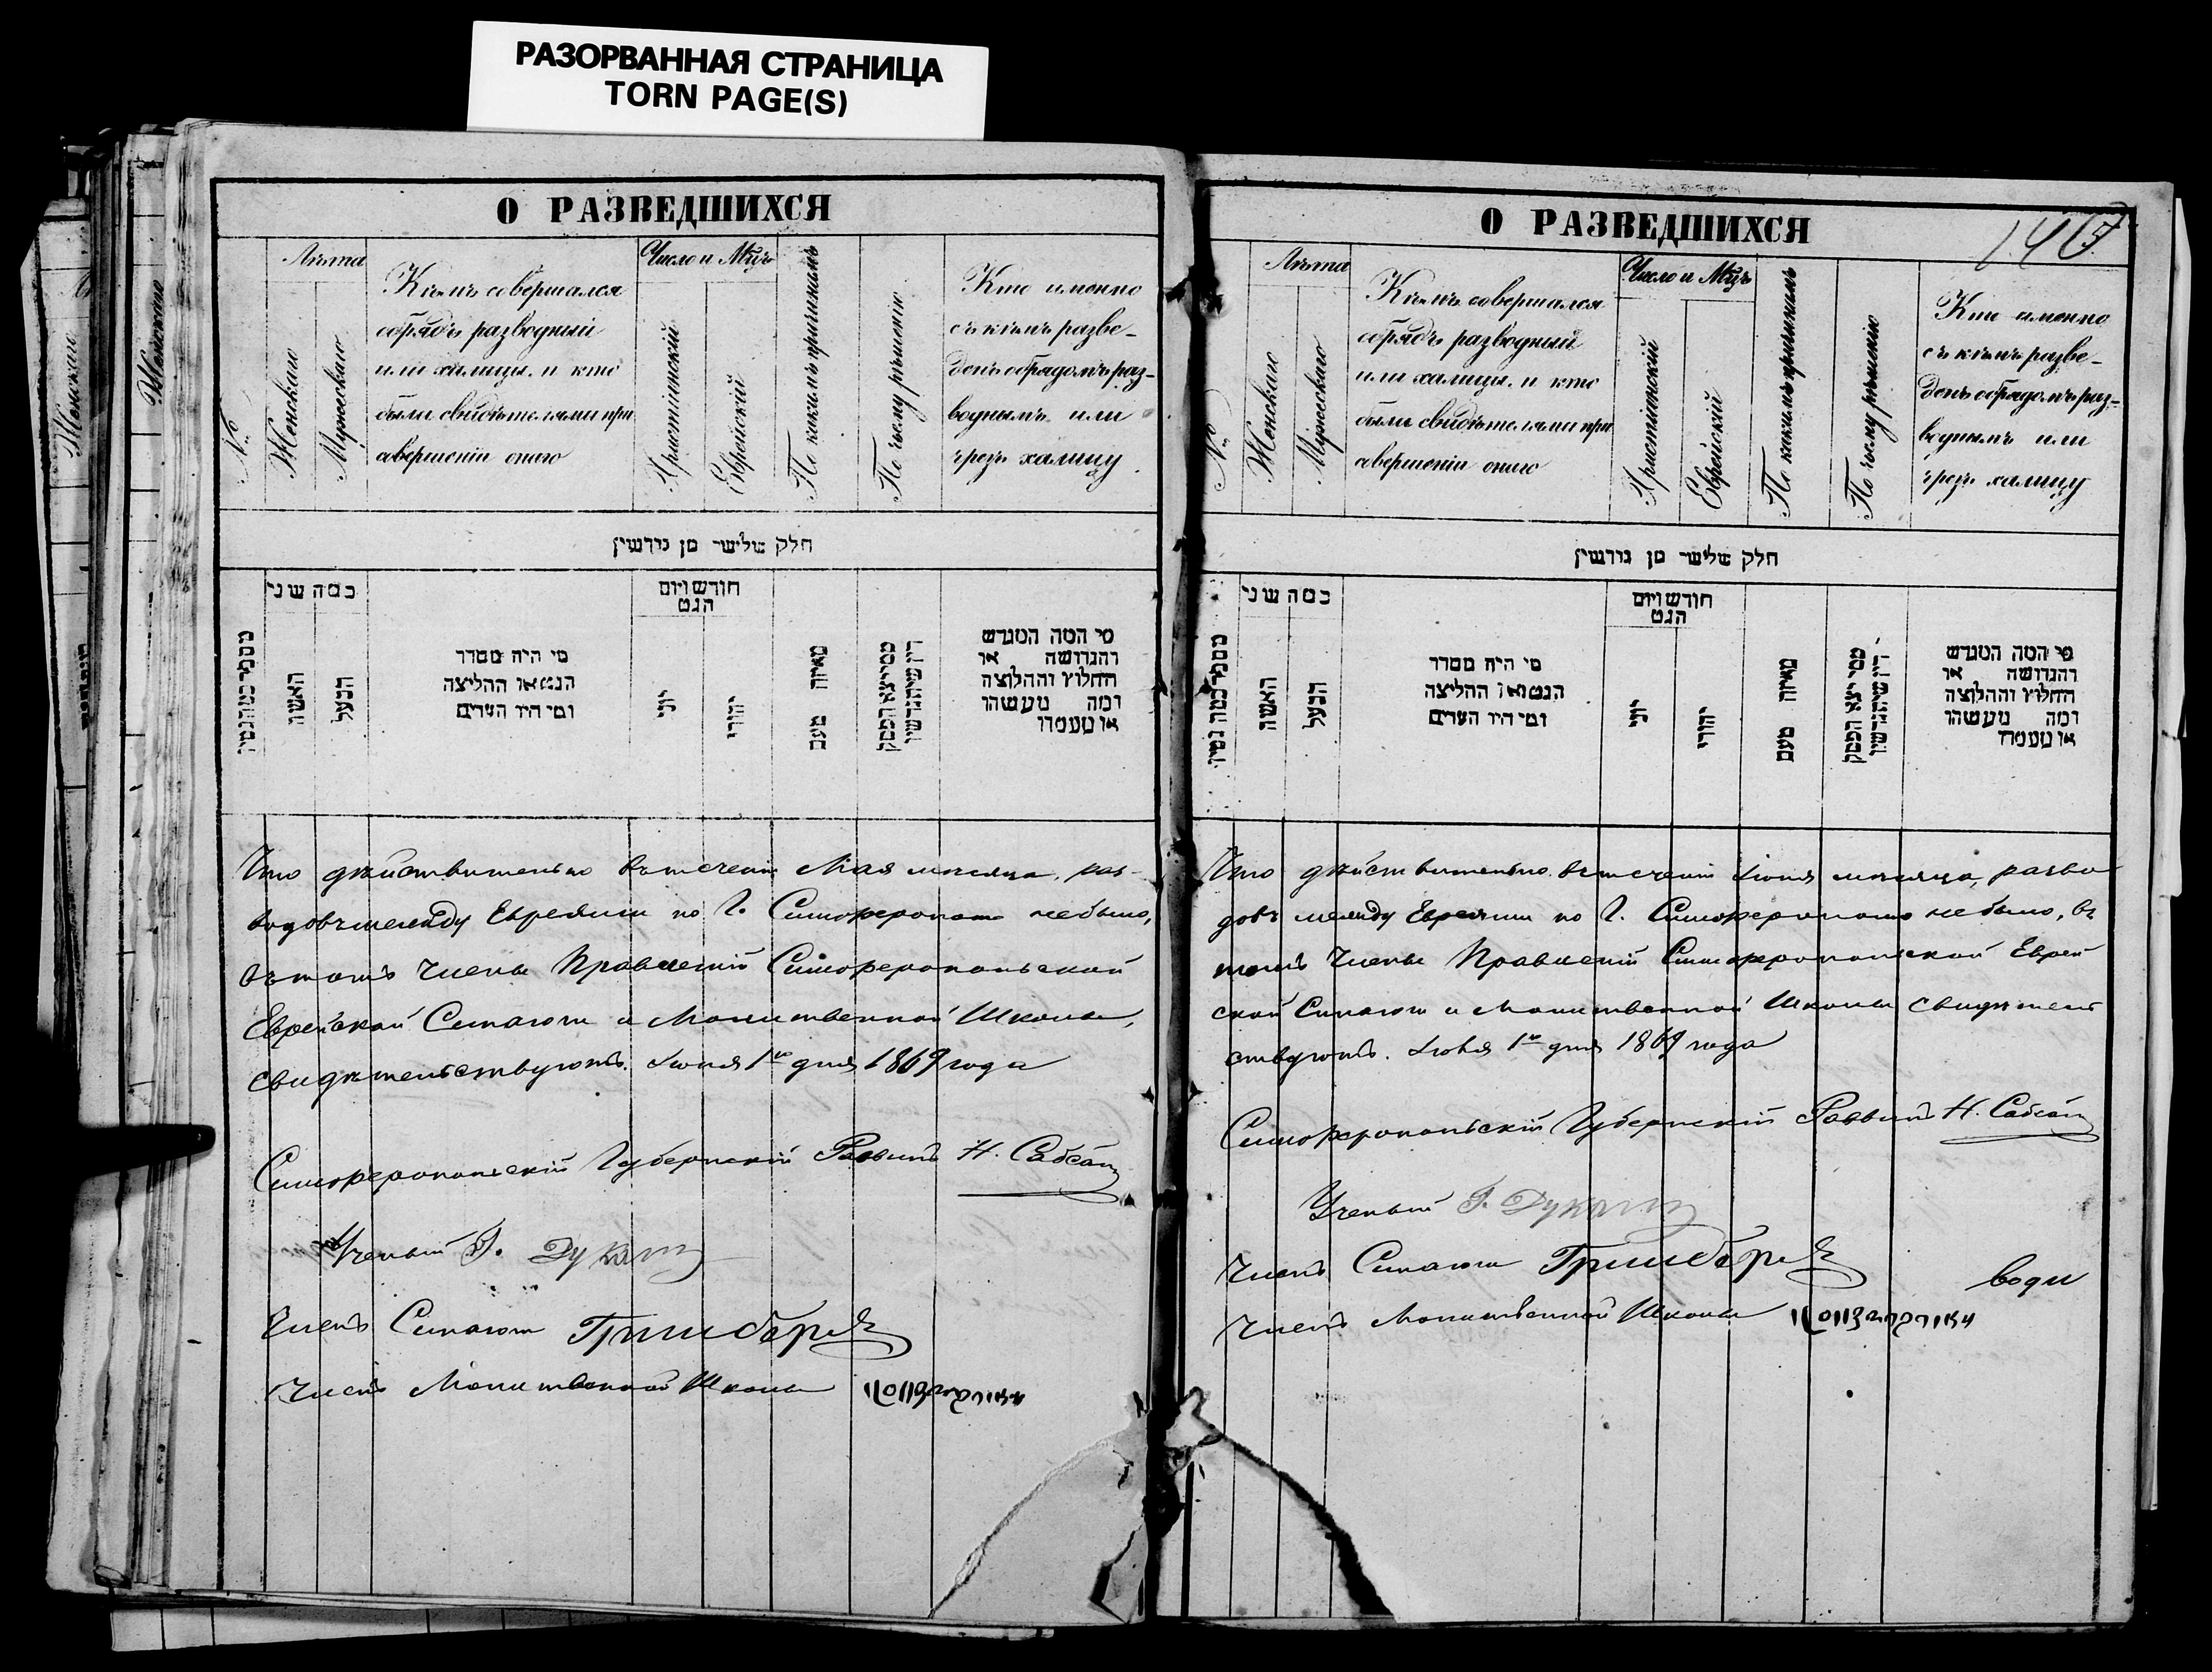 РАЗОРВАННАЯ СТРАНИЦА
TORN PAGE(S)
О РАЗВЕДШИХСЯ
№
Лѣта
Женского
Мужеского
Кѣмъ совершался
обрядъ разводный
или халицы, и кто
были свидѣтелями при
совершеніи оного
Число и Мцъ
Христіянскій
Еврейскій
По какимъ причинамъ
По чьему рѣшенію
Кто именно
съ кѣмъ разве-
денъ обрядомъ раз-
воднымъ или
чрезъ халицу.
חלק שלישי מן גירושין
כמה שני
האשה
הבעל
מי היה מסדר
הגט או החליצה
ומי היו העדים
חודש ויום
הגט
יוני
יהודי
מאיזה טעם
ממי יצא הפסק
דין שיתגרשו
מי המה המגרש
והגרושה או
החלוץ והחלוצה
ומה מעשהו
או מעמדו
Что дѣйствительно втеченіи Мая мѣсяца, раз-
водовъ между Евреями по Г. Симферополю небыло,
въ томъ Члены Правленій Симферопольской
Еврейской Синагоги и Молитвенной Школы,
свидѣтельствуютъ. Іюня 1го дня 1869 года
Симферопольскій Губернскій Раввинъ Н. Сабсай
Ученый
Членъ Синагоги
Членъ Молитвенной Школы
О РАЗВЕДШИХСЯ
№
Лѣта
Женского
Мужеского
Кѣмъ совершался
обрядъ разводный
или халицы, и кто
были свидѣтелями при
совершеніи оного
Число и Мцъ
Христіянскій
Еврейскій
По какимъ причинамъ
По чьему рѣшенію
Кто именно
съ кѣмъ разве-
денъ обрядомъ раз-
воднымъ или
чрезъ халицу
חלק שלישי מן גירושין
כמה שני
האשה
הבעל
מי היה מסדר
הגט או החליצה
ומי היו העדים
חודש ויום
הגט
יוני
יהודי
מאיזה טעם
ממי יצא הפסק
דין שיתגרשו
מי המה המגרש
והגרושה או
החלוץ והחלוצה
ומה מעשהו
או מעמדו
Что дѣйствительно втеченіи Іюня мѣсяца, разво
довъ между Евреями по Г. Симферополю небыло, въ
томъ Члены Правленій Симферопольской Еврей
ской Синагоги и Молитвенной Школы свидѣтель
ствуютъ. Іюля 1го дня 1869 года
Симферопольскій Губернскій Раввинъ Н. Сабсай
Ученый
Членъ Синагоги
води
Членъ Молитвенной Школы